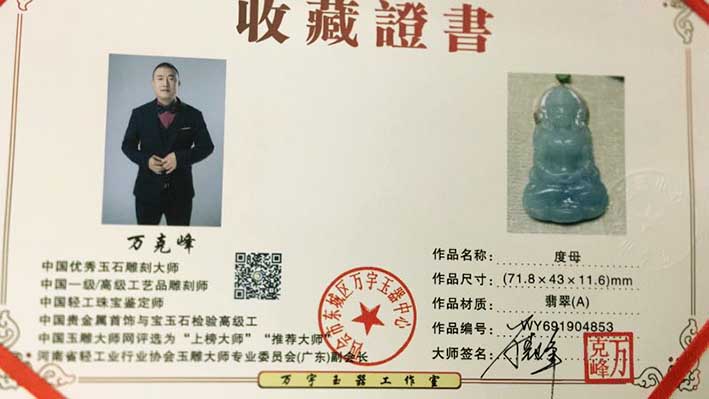 收藏證書
万克峰
中国优秀玉石雕刻大师
中国一级/高级工艺品雕刻师
中国轻工珠宝鉴定师
中国贵金属首饰与宝玉石检验高级工
中国玉雕大师网评选为“上榜大师” “推荐大师”
河南省轻工业行业协会玉雕大师专业委员会(广东)副会长
作品名称: 度母
作品尺寸: (71.8×43×11.6)mm
作品材质: 翡翠(A)
作品编号: WY691904853
大师签名:
万克峰
会市东城区万宇玉器中心
万宇玉器工作室